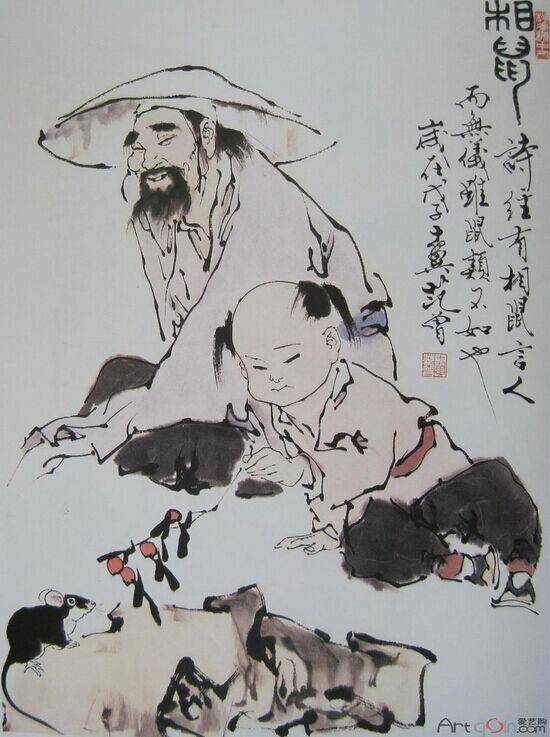 相鼠
詩经有相鼠言人
而無儀雖鼠類不如也
歲在戊子十翼范曾
Artgoin.com
爱艺购